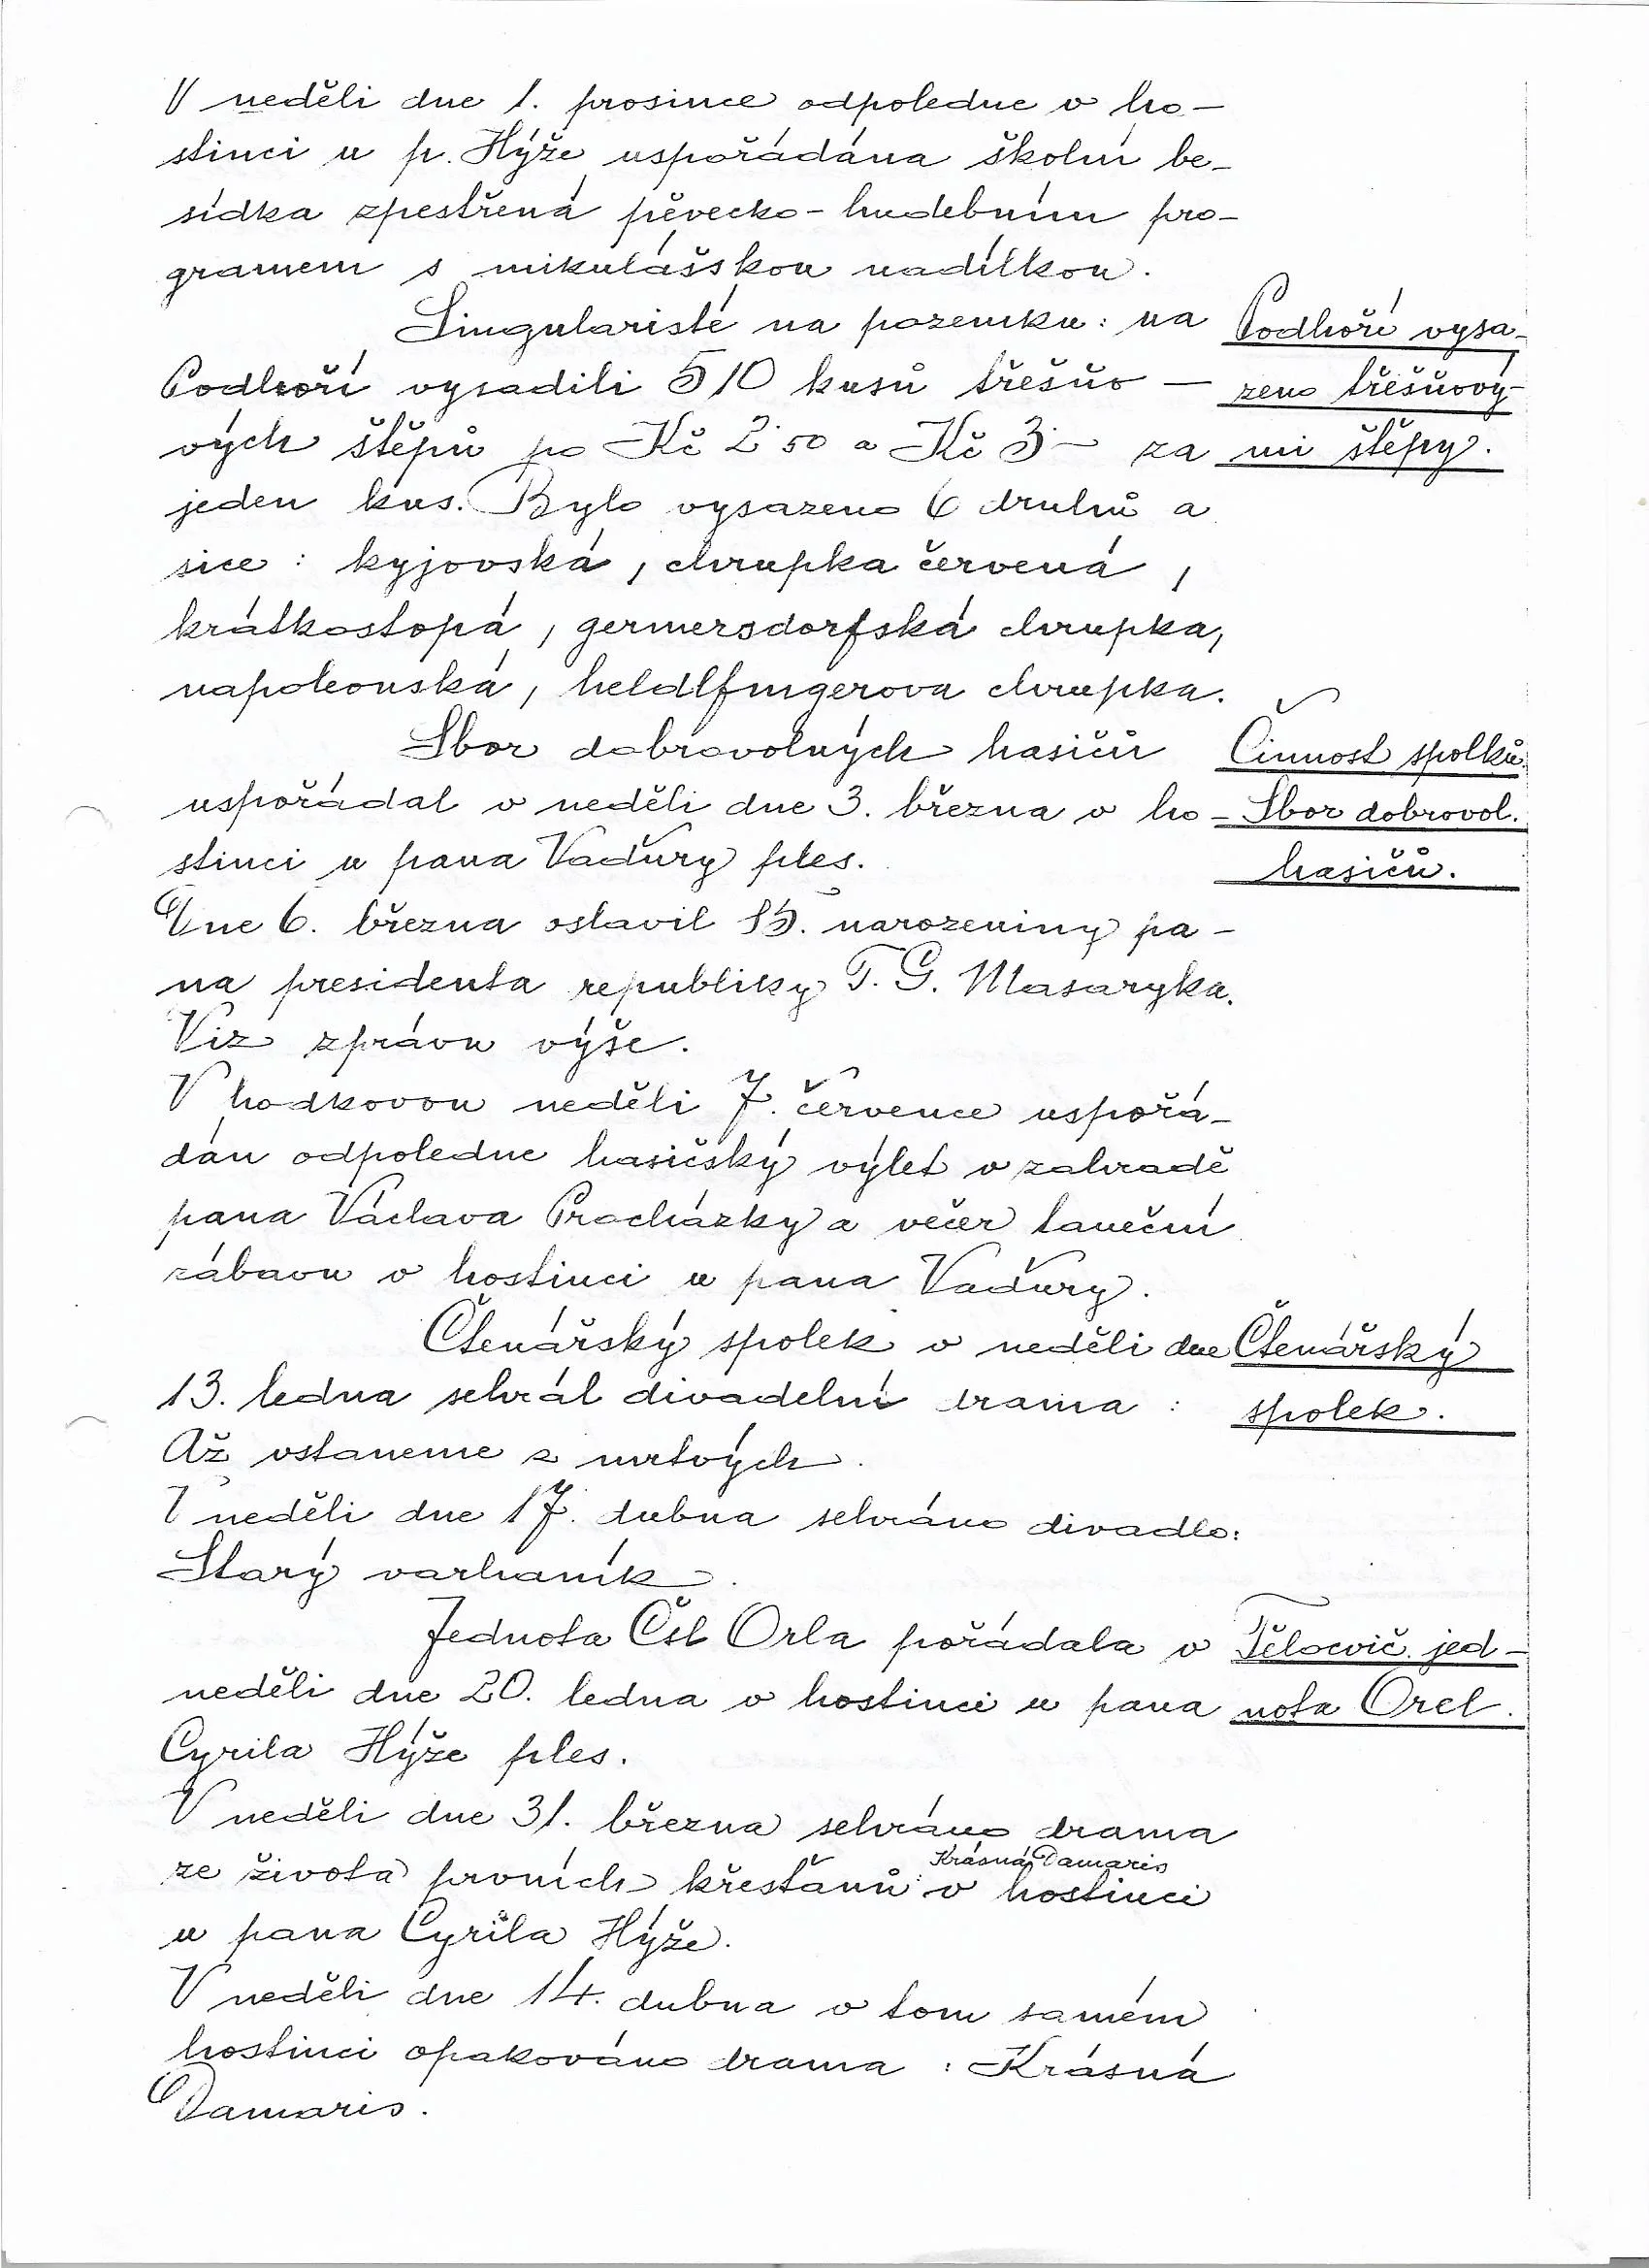 V neděli dne 1. prosince odpoledne v ho-
stinci u p. Hýže uspořádána školní be-
sídka zpestřená pěvecko-hudebním pro-
gramem s mikulášskou nadílkou.
Singularisté na pozemku: na
Podhoří vysa-
Podhoří vysadili 510 kusů třešňo-
zeno třešňový-
vých štěpů po Kč 2·50 a Kč 3·- za
mi štěpy.
jeden kus. Bylo vysazeno 6 druhů a
sice: kyjovská, chrupka červená,
krátkostopá, germersdorfská chrupka,
napoleonská, heldlfingerova chrupka.
Sbor dobrovolných hasičů
Činnost spolků.
uspořádal v neděli dne 3. března v ho-
Sbor dobrovol.
stinci u pana Vaďury ples.
hasičů.
Dne 6. března oslavil 85. narozeniny pa-
na presidenta republiky T. G. Masaryka.
Viz zprávu výše.
V hodkovou neděli 7. července uspořá-
dán odpoledne hasičský výlet v zahradě
pana Václava Procházky a večer taneční
zábavu v hostinci u pana Vaďury.
Čtenářský spolek v neděli dne
Čtenářský
13. ledna sehrál divadelní drama:
spolek.
Až vstaneme z mrtvých.
V neděli dne 17. dubna sehráno divadlo:
Starý varhaník.
Jednota Čsl Orla pořádala v
Tělocvič. jed-
neděli dne 20. ledna v hostinci u pana
nota Orel.
Cyrila Hýže ples.
V neděli dne 31. března sehráno drama
Krásná Damaris
ze života prvních křesťanů: v hostinci
u pana Cyrila Hýže.
V neděli dne 14. dubna v tom samém
hostinci opakováno drama: Krásná
Damaris.